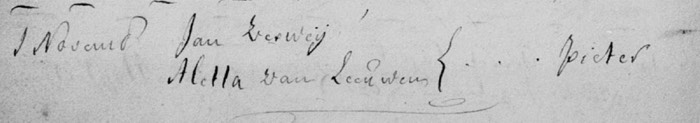 5 Novemb Jan Verweij
Aletta van Leeuwen { . . . Pieter